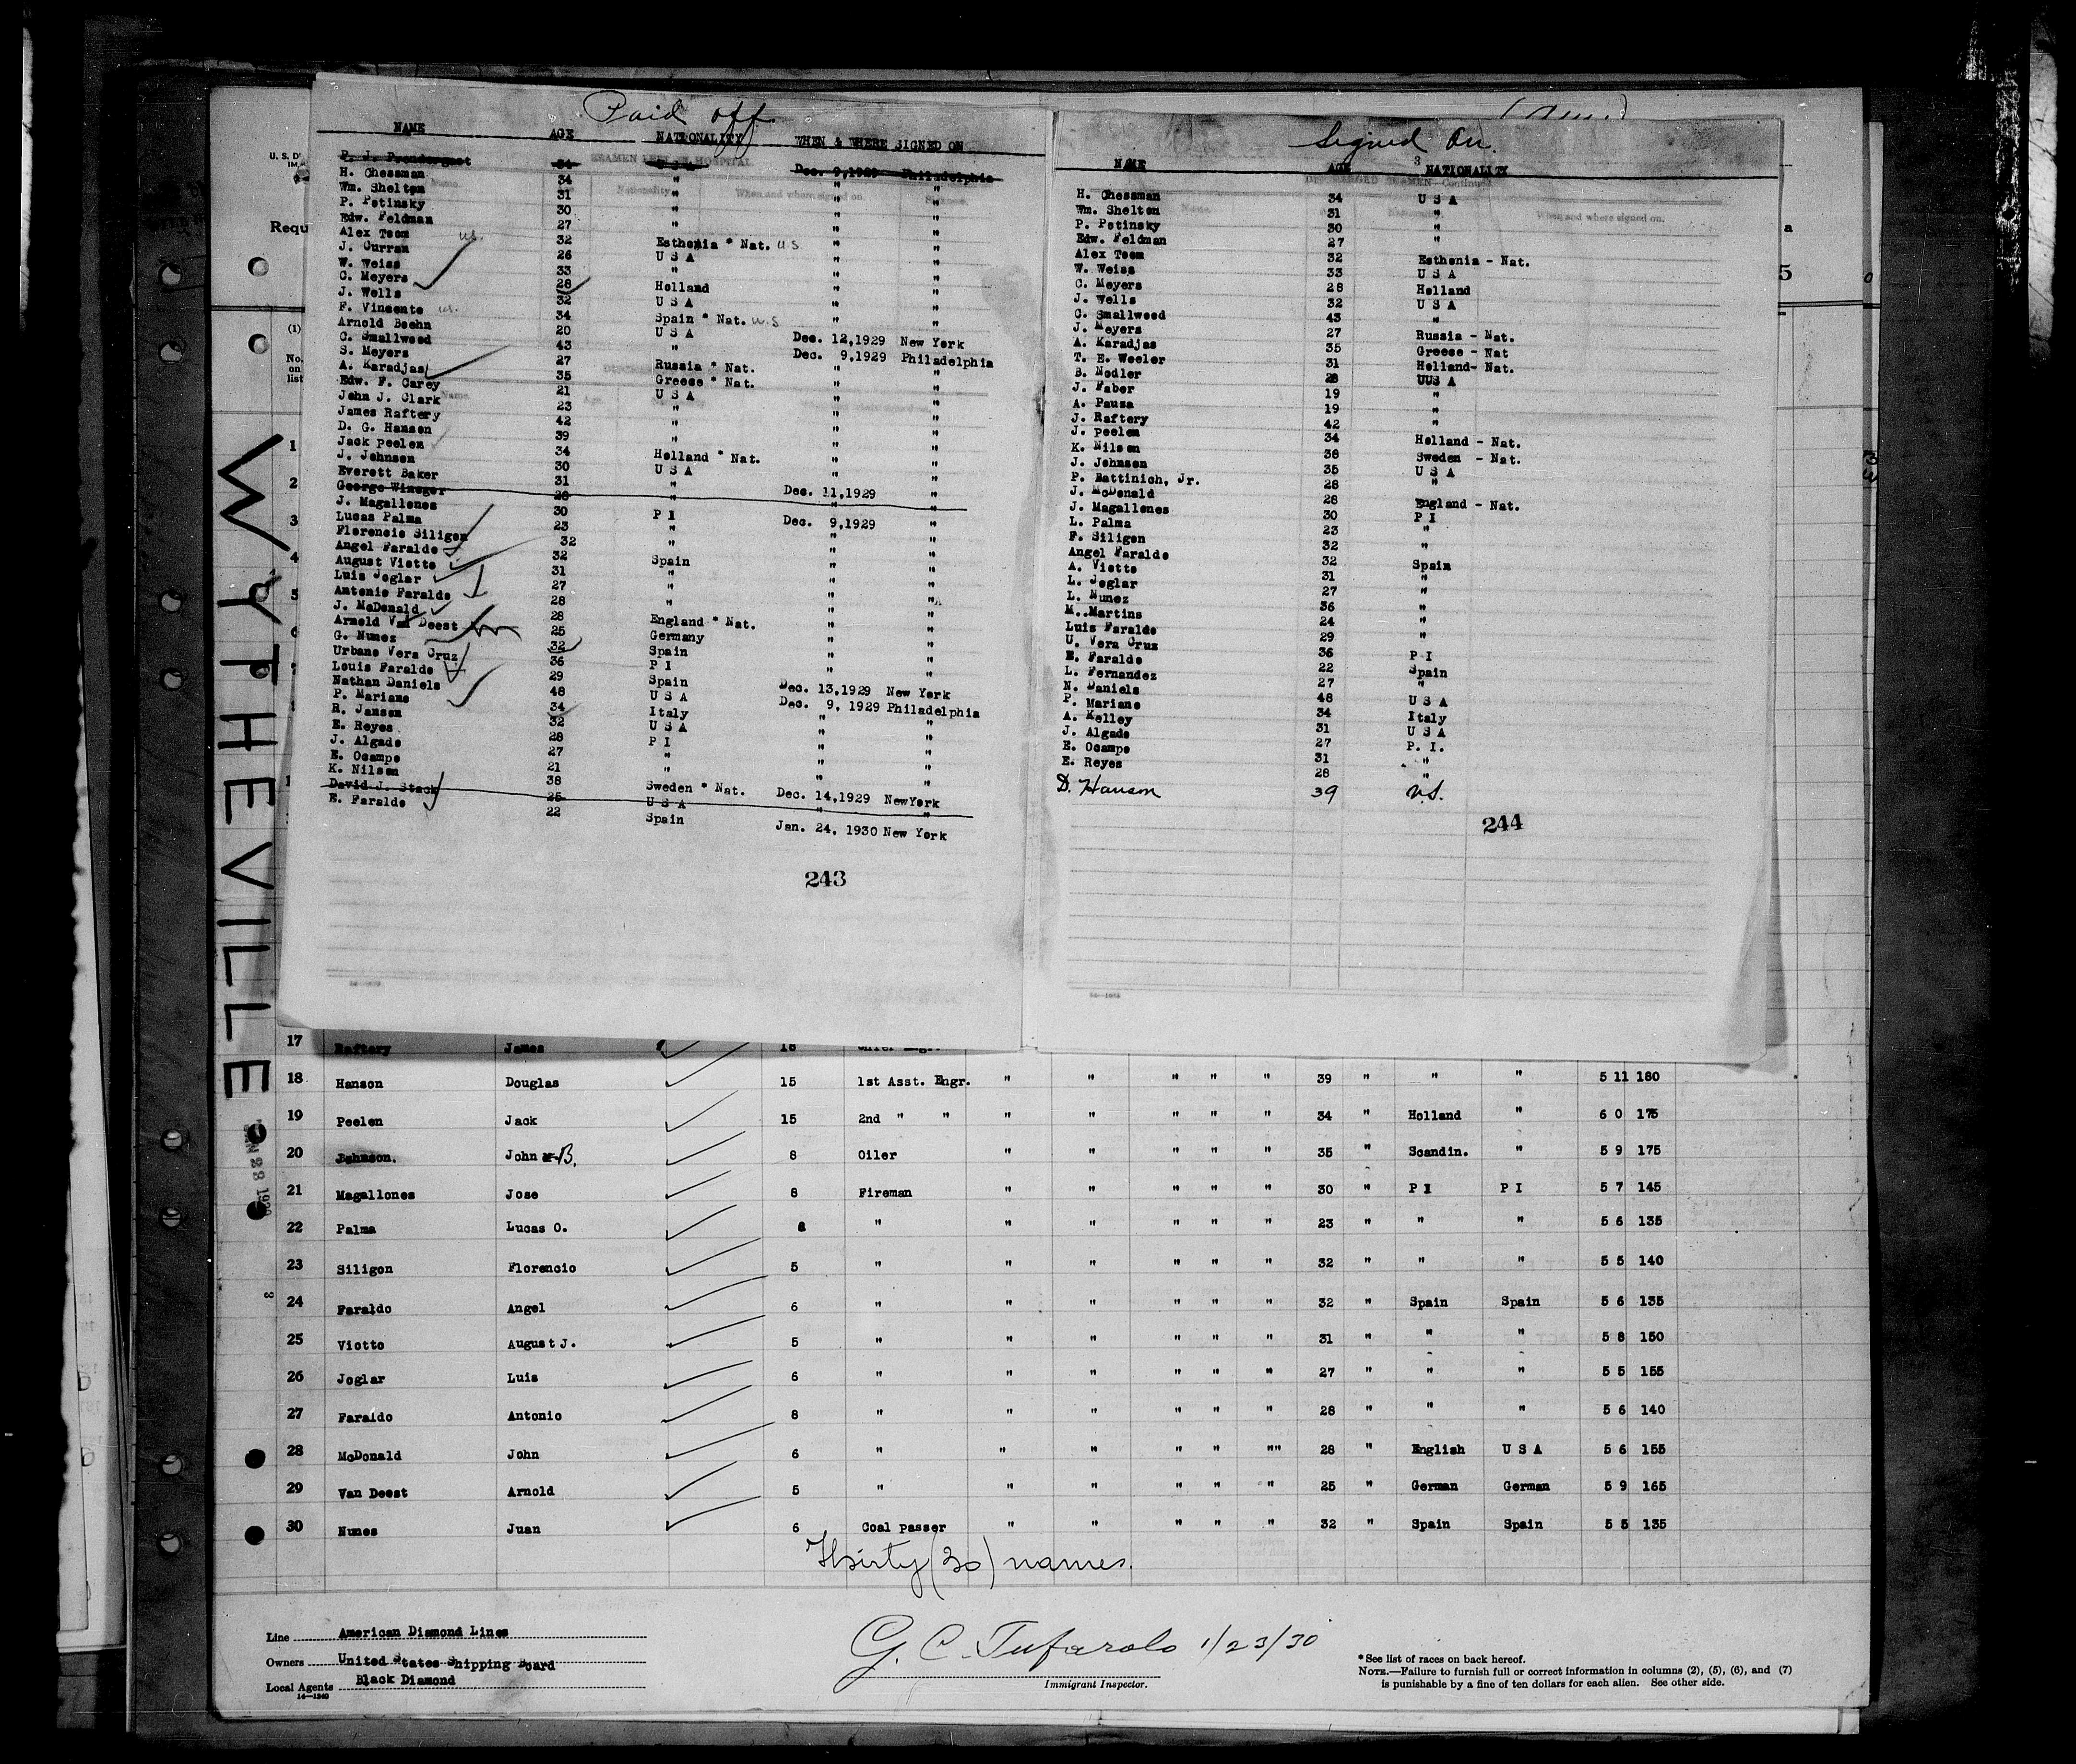 Paid off
NAME AGE NATIONALITY WHEN & WHERE SIGNED ON
P. J. Prendergast 34 U S A Dec. 9,1929 Philadelphia
H. Chessman 34 " " "
Wm. Shelton 31 " " "
P. Petinsky 30 " " "
Edw. Feldman 27 " " "
Alex Toom us. 32 Esthonia * Nat. U S " "
J. Curran 26 U S A " "
W. Weiss 33 " " "
C. Meyers 28 Holland " "
J. Wells 32 U S A " "
F. Vincente us. 34 Spain * Nat. U.S " "
Arnold Boehn 20 U S A Dec. 12,1929 New York
C. Smallwood 43 " Dec. 9,1929 Philadelphia
S. Meyers 27 Russia * Nat. " "
A. Karadjas 35 Greese * Nat. " "
Edw. F. Carey 21 U S A " "
John J. Clark 23 " " "
James Raftery 42 " " "
D. G. Hansen 39 " " "
Jack Peelen 34 Holland * Nat. " "
J. Johnson 30 U S A " "
Everett Baker 31 " Dec. 11,1929 "
George Wineger 28 " " "
J. Magallones 30 P I Dec. 9,1929 "
Lucas Palma 23 " " "
Florencio Siligon 32 " " "
Angel Faraldo 32 Spain " "
August Viotto 31 " " "
Luis Joglar 27 " " "
Antonio Faraldo 28 " " "
J. McDonald 28 England * Nat. " "
Arnold Van Deest 25 Germany " "
G. Nunez 32 Spain " "
Urbano Vera Cruz 36 P I " "
Louis Faraldo 29 Spain Dec. 13,1929 New York
Nathan Daniels 48 U S A Dec. 9, 1929 Philadelphia
P. Mariano 34 Italy " "
R. Jansen 32 U S A " "
E. Reyes 28 P I " "
J. Algado 27 " " "
E. Ocampo 21 " " "
K. Nilsen 38 Sweden * Nat. Dec. 14,1929 NewYork
David J. Stack 25 U S A " "
E. Faraldo 22 Spain Jan. 24, 1930 New York
243
Signed On.
3
NAME AGE NATIONALITY
DISCHARGED SEAMEN—Continued
H. Chessman 34 U S A
Wm. Shelton 31 "
P. Petinsky 30 "
Edw. Feldman 27 "
Alex Toom 32 Esthonia - Nat.
W. Weiss 33 U S A
C. Meyers 28 Holland
J. Wells 32 U S A
C. Smallwood 43 "
J. Meyers 27 Russia - Nat.
A. Karadjas 35 Greese - Nat
T. E. Weeler 31 Holland- Nat.
B. Nodler 28 UUS A
J. Faber 19 "
A. Pausa 19 "
J. Raftery 42 "
J. Peelen 34 Holland - Nat.
K. Nilsen 38 Sweden - Nat.
J. Johnson 35 U S A
P. Battinich, Jr. 28 "
J. McDonald 28 England - Nat.
J. Magallones 30 P I
L. Palma 23 "
F. Siligon 32 "
Angel Faraldo 32 Spain
A. Viotto 31 "
L. Joglar 27 "
L. Nunez 36 "
M..Martins 24 "
Luis Faraldo 29 "
U. Vera Cruz 36 P I
E. Faraldo 22 Spain
L. Fernandez 27 "
N. Daniels 48 U S A
P. Mariano 34 Italy
A. Kelley 31 U S A
J. Algado 27 P. I.
E. Ocampo 31 "
E. Reyes 28 "
D. Hanson 39 U.S.
244
WYTHEVILLE
Requ
(1)
No.
on
list
1
2
3
4
5
6
17 Raftery James 18 Chief Engr.
18 Hanson Douglas 15 1st Asst. Engr. " " " " " 39 " " " 5 11 180
19 Peelen Jack 15 2nd " " " " " " " 34 " Holland " 6 0 175
20 Johnson. John B. 8 Oiler " " " " " 35 " Scandin. " 5 9 175
21 Magallones Jose 8 Fireman " " " " " 30 " P I P I 5 7 145
22 Palma Lucas O. " " " " " " 23 " " " 5 6 135
23 Siligon Florencio 5 " " " " " " 32 " " " 5 5 140
24 Faraldo Angel 6 " " " " " " 32 " Spain Spain 5 6 135
25 Viotto August J. 5 " " " " " " 31 " " " 5 8 150
26 Joglar Luis 6 " " " " " " 27 " " " 5 5 155
27 Faraldo Antonio 8 " " " " " " 28 " " " 5 6 140
28 McDonald John 6 " " " " " "" 28 " English U S A 5 6 155
29 Van Deest Arnold 5 " " " " " " 25 " German German 5 9 165
30 Nunes Juan 6 Coal passer " " " " " 32 " Spain Spain 5 5 135
Thirty (30) names.
Line American Diamond Lines
Owners United States Shipping Board
Local Agents Black Diamond
14—1240
G. C. Tufarolo 1/23/30
Immigrant Inspector.
* See list of races on back hereof.
NOTE.—Failure to furnish full or correct information in columns (2), (5), (6), and (7)
is punishable by a fine of ten dollars for each alien. See other side.